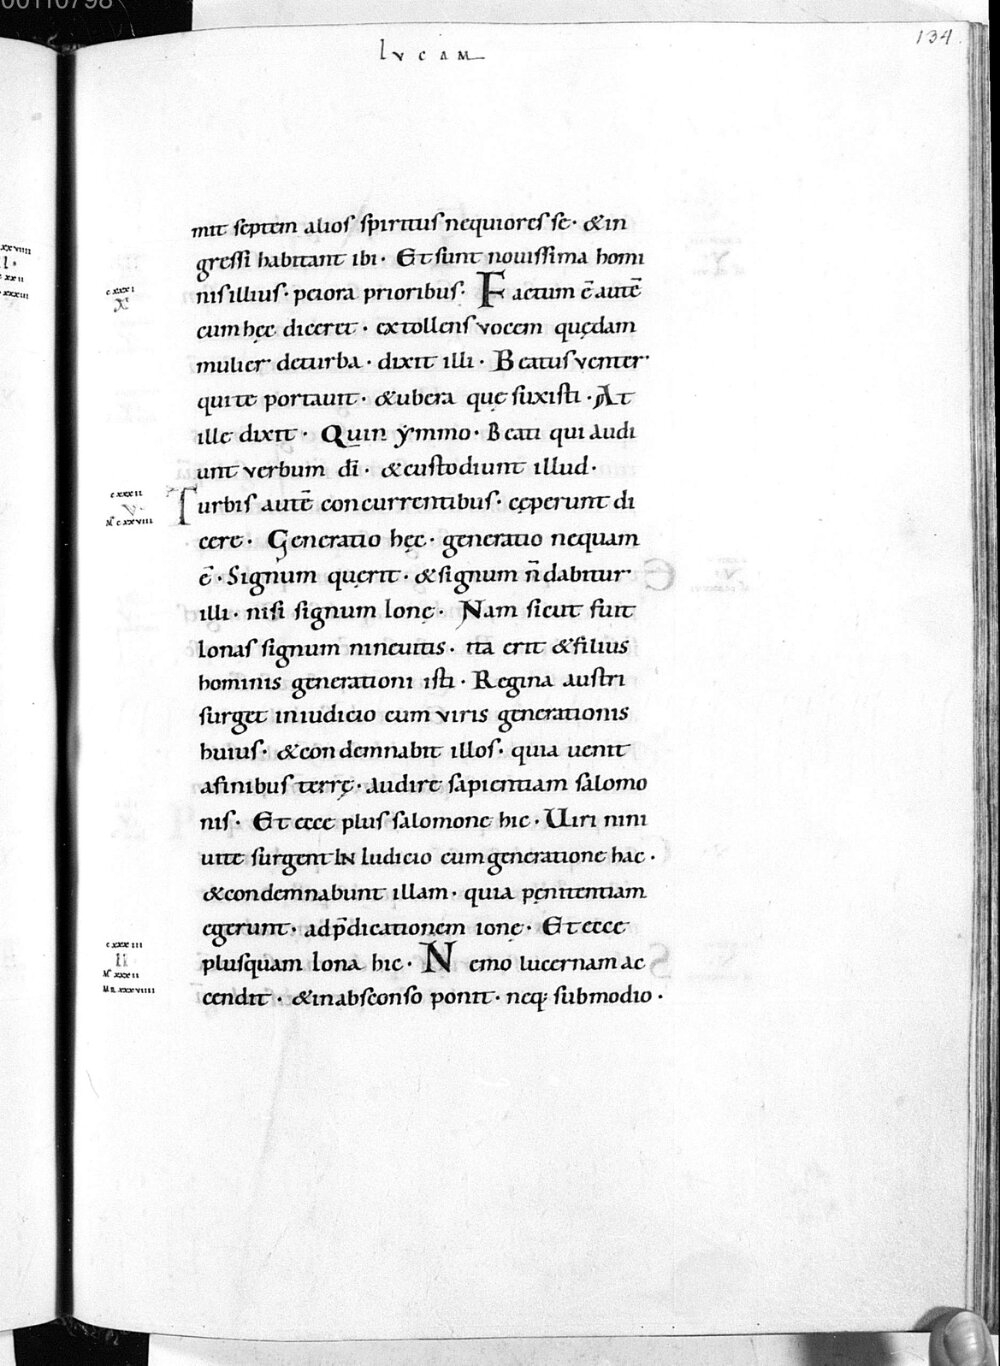 00110798
lvcam
134.
mit septem alios spiritus nequiores se · &in
gressi habitant ibi · Et sunt nouissima homi
nis illius · peiora prioribus · Factum ē autē
cxxxi
X
cum hęc diceret · extollens vocem quędam
mulier deturba · dixit illi · Beatus venter
qui te portauit · &ubera quę suxisti · At
ille dixit · Quin ymmo · Beati qui audi
unt verbum dī · &custodiunt illud ·
cxxxii
V
Mt cxxviii
Turbis autē concurrentibus · cęperunt di
cere · Generatio hęc · generatio nequam
ē · Signum quęrit · &signum n̄ dabitur
illi · nisi signum Ionę · Nam sicut fuit
Ionas signum nineuitis · ita erit &filius
hominis generationi isti · Regina austri
surget iniudicio cum viris generationis
huius · &condemnabit illos · quia uenit
afinibus terrę · audire sapientiam salomo
nis · Et ecce plus salomone hic · Uiri nini
uite surgent IN Iudicio cum generatione hac ·
&condemnabunt illam · quia pęnitentiam
egerunt · ad p̄dicationem ionę · Et ecce
cxxxiii
II
Mt xxxii
Mr xxxviiii
plusquam Iona hic · Nemo lucernam ac
cendit · &inabsconso ponit · neq; submodio ·